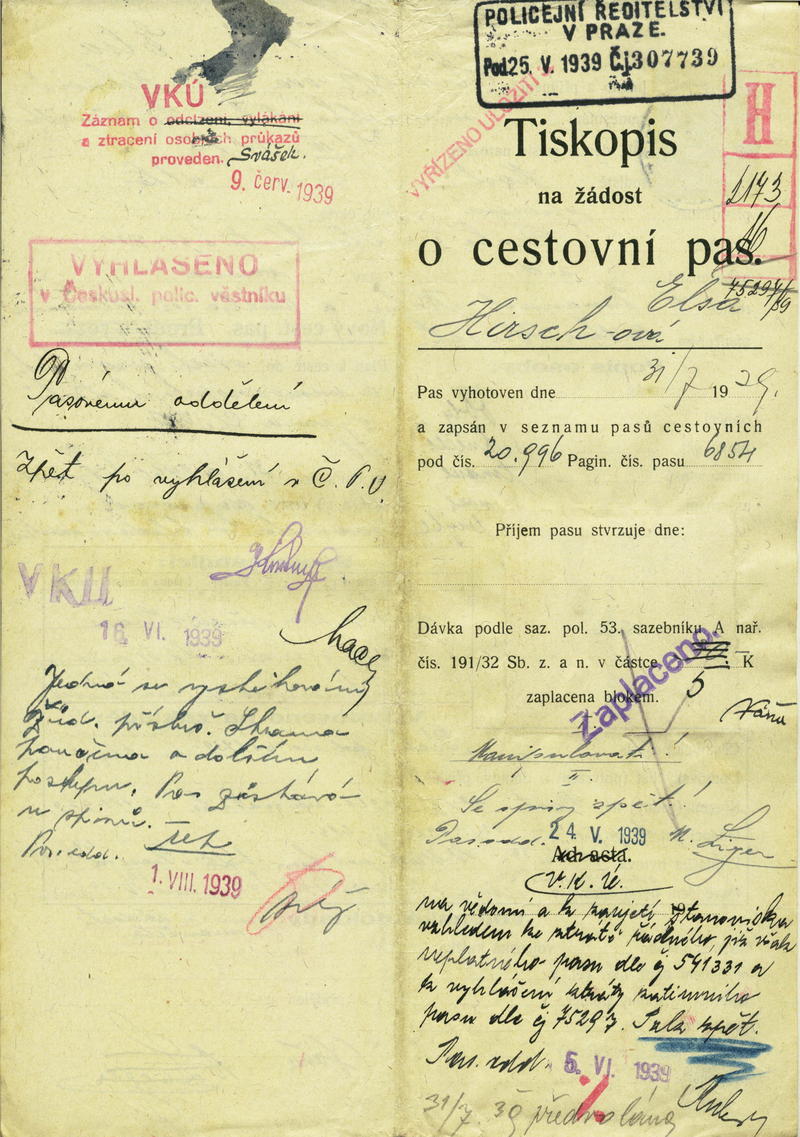 VKÚ
Záznam o odcizení, vylákání
a ztracení osobních průkazů
proveden. Svášek.
9. červ. 1939
VYHLÁŠENO
v Českusl. polic. věstníku
Pasovému oddělení
Zpět po vyhlášení v Č. P. V
VKÚ
16. VI. 1939
Jedná se vystěhování
žid. přísluš. Strana
poučena o dalším
postupu. Pas zůstává
u spisů.
Pas. odd.
1. VIII. 1939
POLICEJNÍ ŘEDITELSTVÍ
V PRAZE.
Pod. 25. V. 1939 Čj. 307739
VYŘÍZENO ULOŽITI
H
1173
16
75297/39
Tiskopis
na žádost
o cestovní pas.
Elsa
Hirsch-ová
Pas vyhotoven dne 31/7 1939.
a zapsán v seznamu pasů cestovních
pod čís. 20.996 Pagin. čís. pasu 6854
Příjem pasu stvrzuje dne:
Dávka podle saz. pol. 53. sazebníku A nař.
čís. 191/32 Sb. z. a n. v částce K
5
zaplacena blokem.
Zaplaceno.
Manipulovati!
II.
Se spisy zpět!
Pas. odd. 24. V. 1939
Adrasta.
V. K. Ú.
na vědomí a k zaujetí stanoviska
vzhledem ke ztrátě řádného, již však
neplatného pasu dle čj 541331 a
k vyhlášení ztráty zatimního
pasu dle čj 75297. Sala zpět.
Pas. odd. 5. VI. 1939
31/7. 39 předvolána